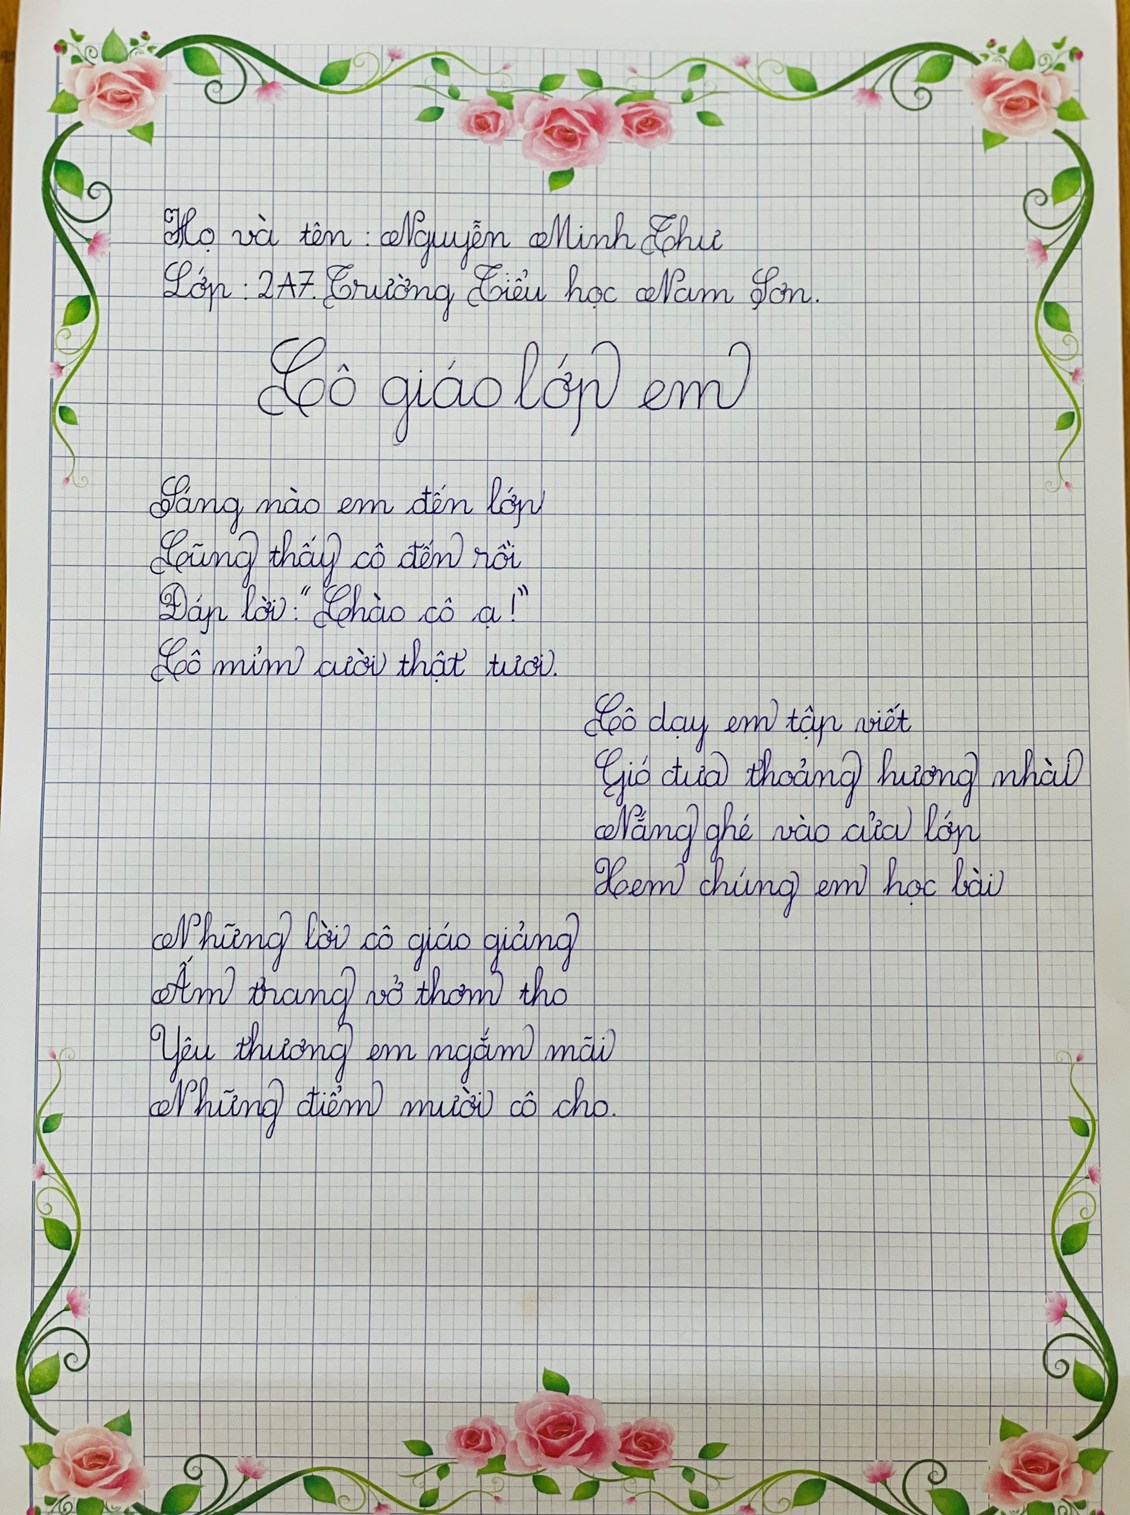 Họ và tên : Nguyễn Minh Thư
Lớp : 2A7. Trường Tiểu học Nam Sơn.
Cô giáo lớp em
Sáng nào em đến lớp
Cũng thấy cô đến rồi
Đáp lời : " Chào cô ạ ! "
Cô mỉm cười thật tươi.
Cô dạy em tập viết
Gió đưa thoảng hương nhài
Nắng ghé vào cửa lớp
Xem chúng em học bài
Những lời cô giáo giảng
Ấm trang vở thơm tho
Yêu thương em ngắm mãi
Những điểm mười cô cho.